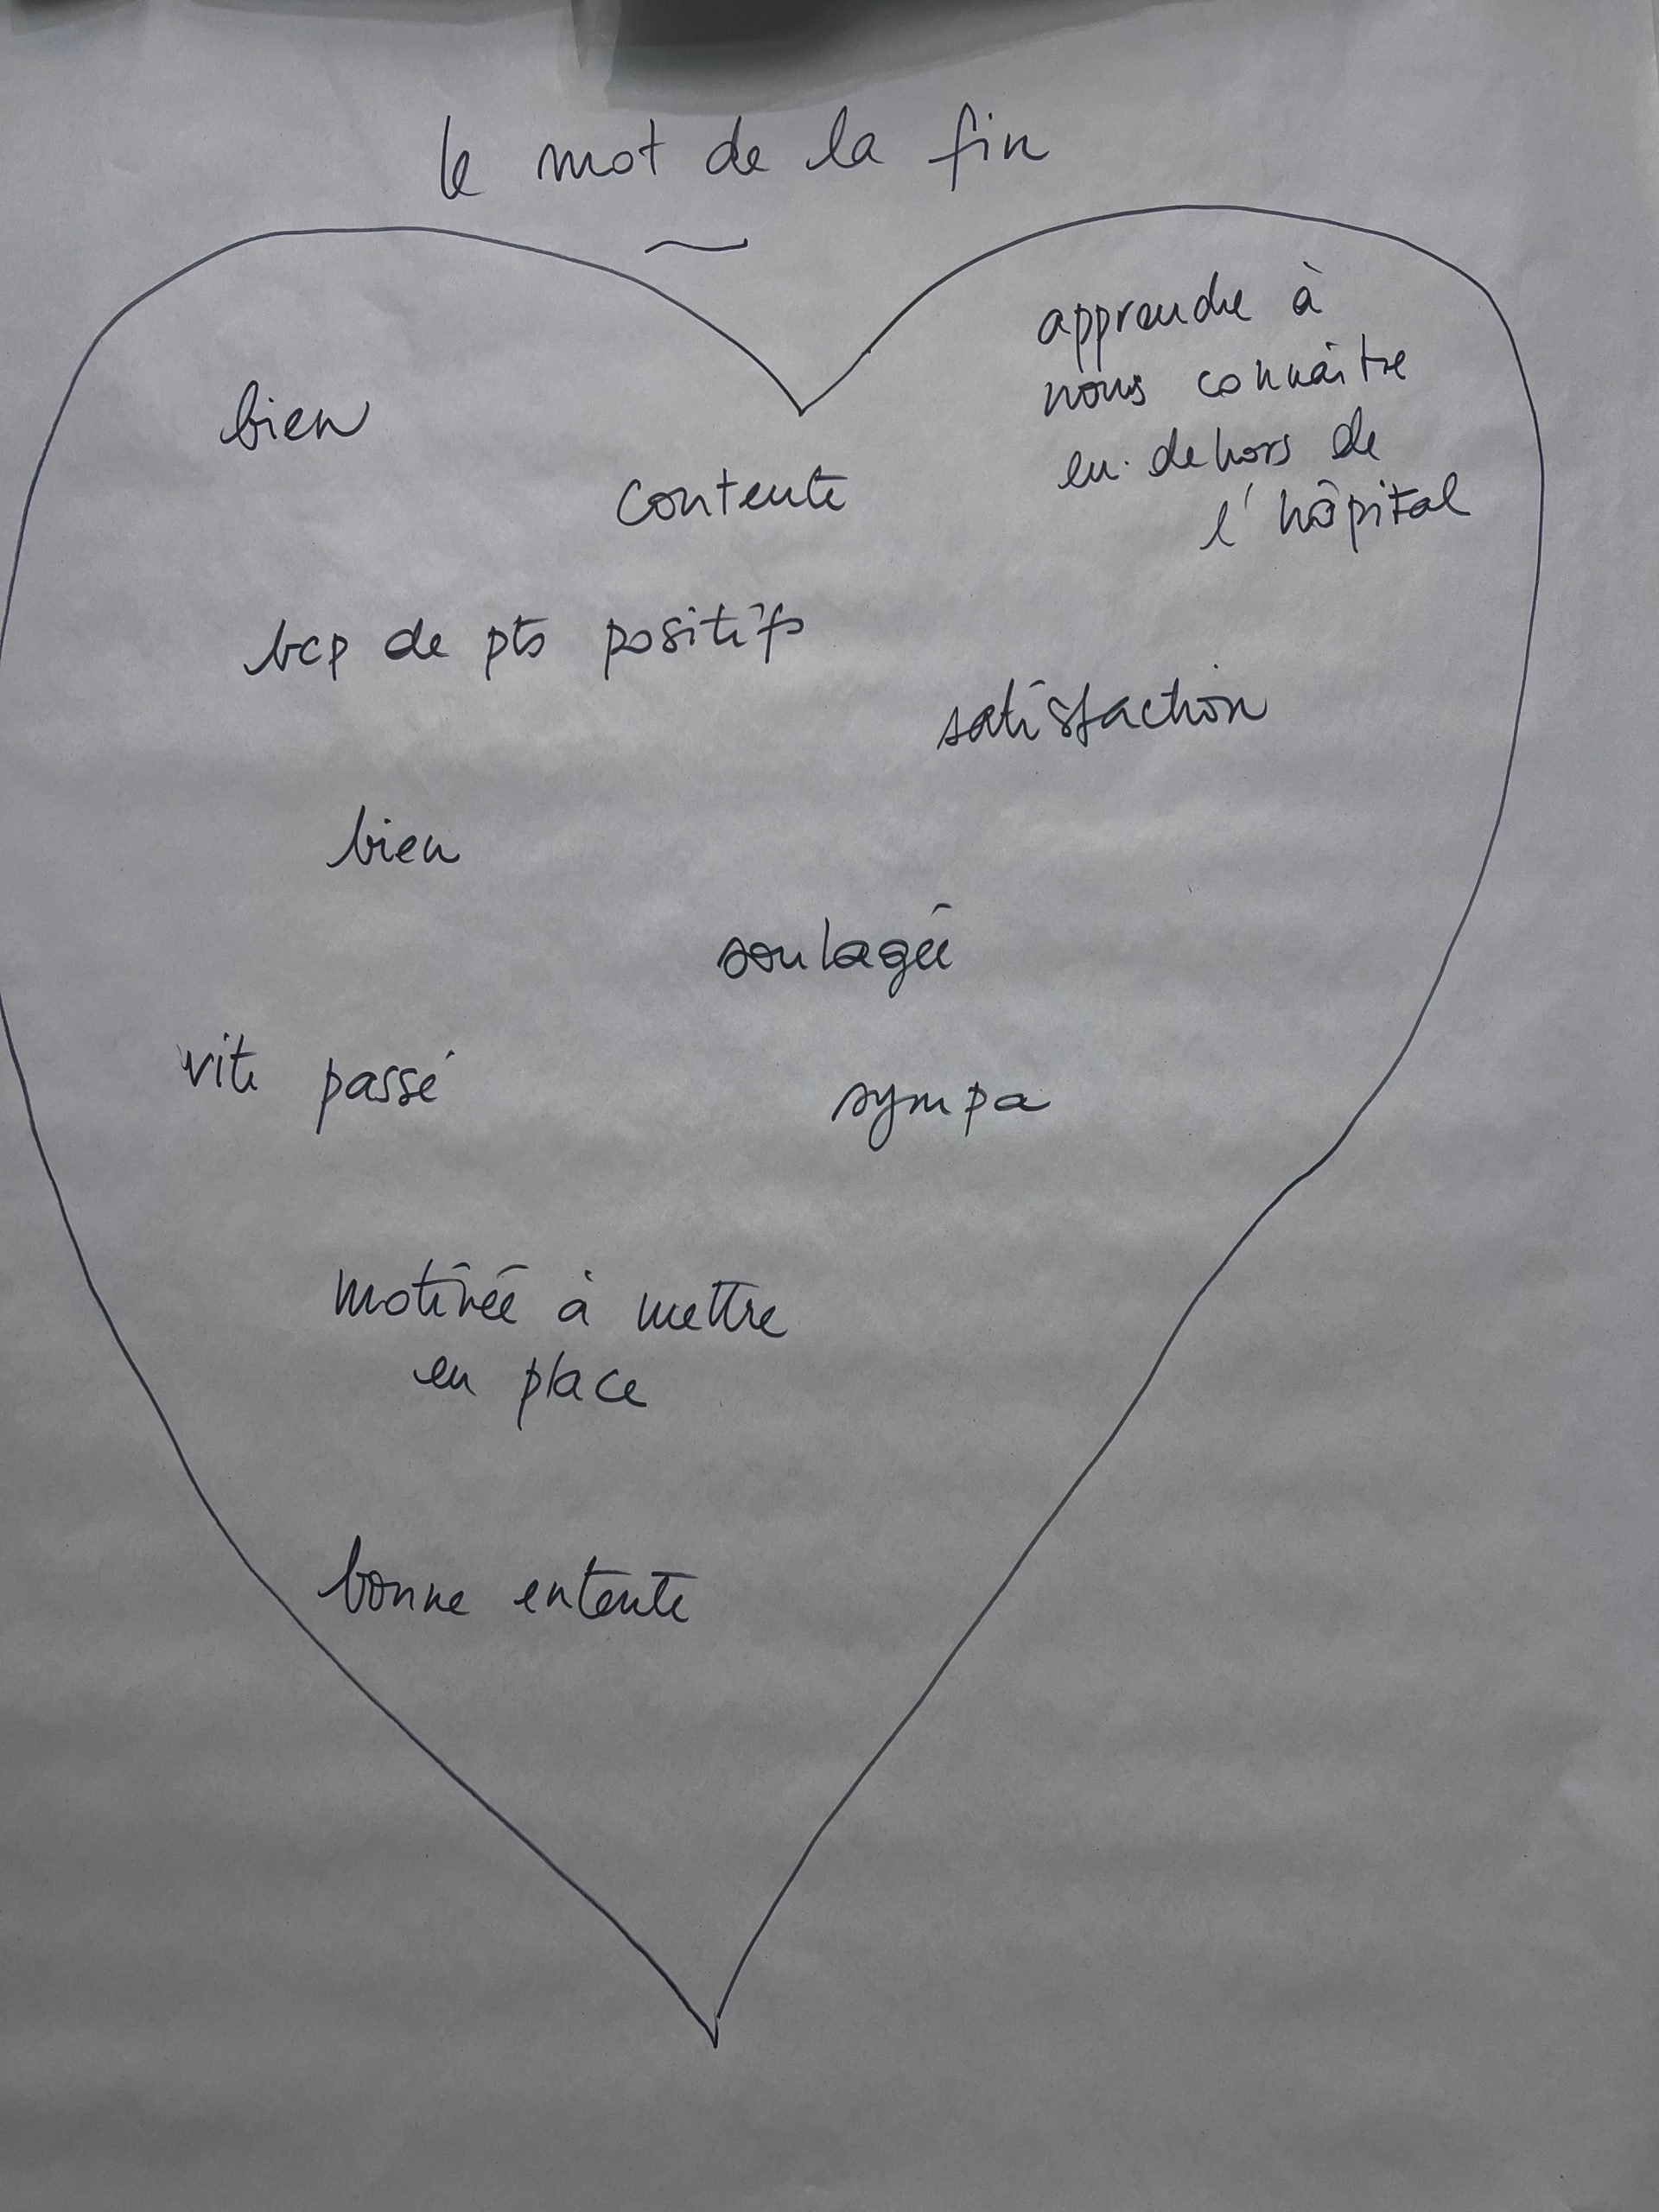 le mot de la fin
apprendre à
nous connaître
en dehors de
l'hôpital
bien
contente
bcp de pts positifs
satisfaction
bien
soulagée
vite passé
sympa
motivée à mettre
en place
bonne entente